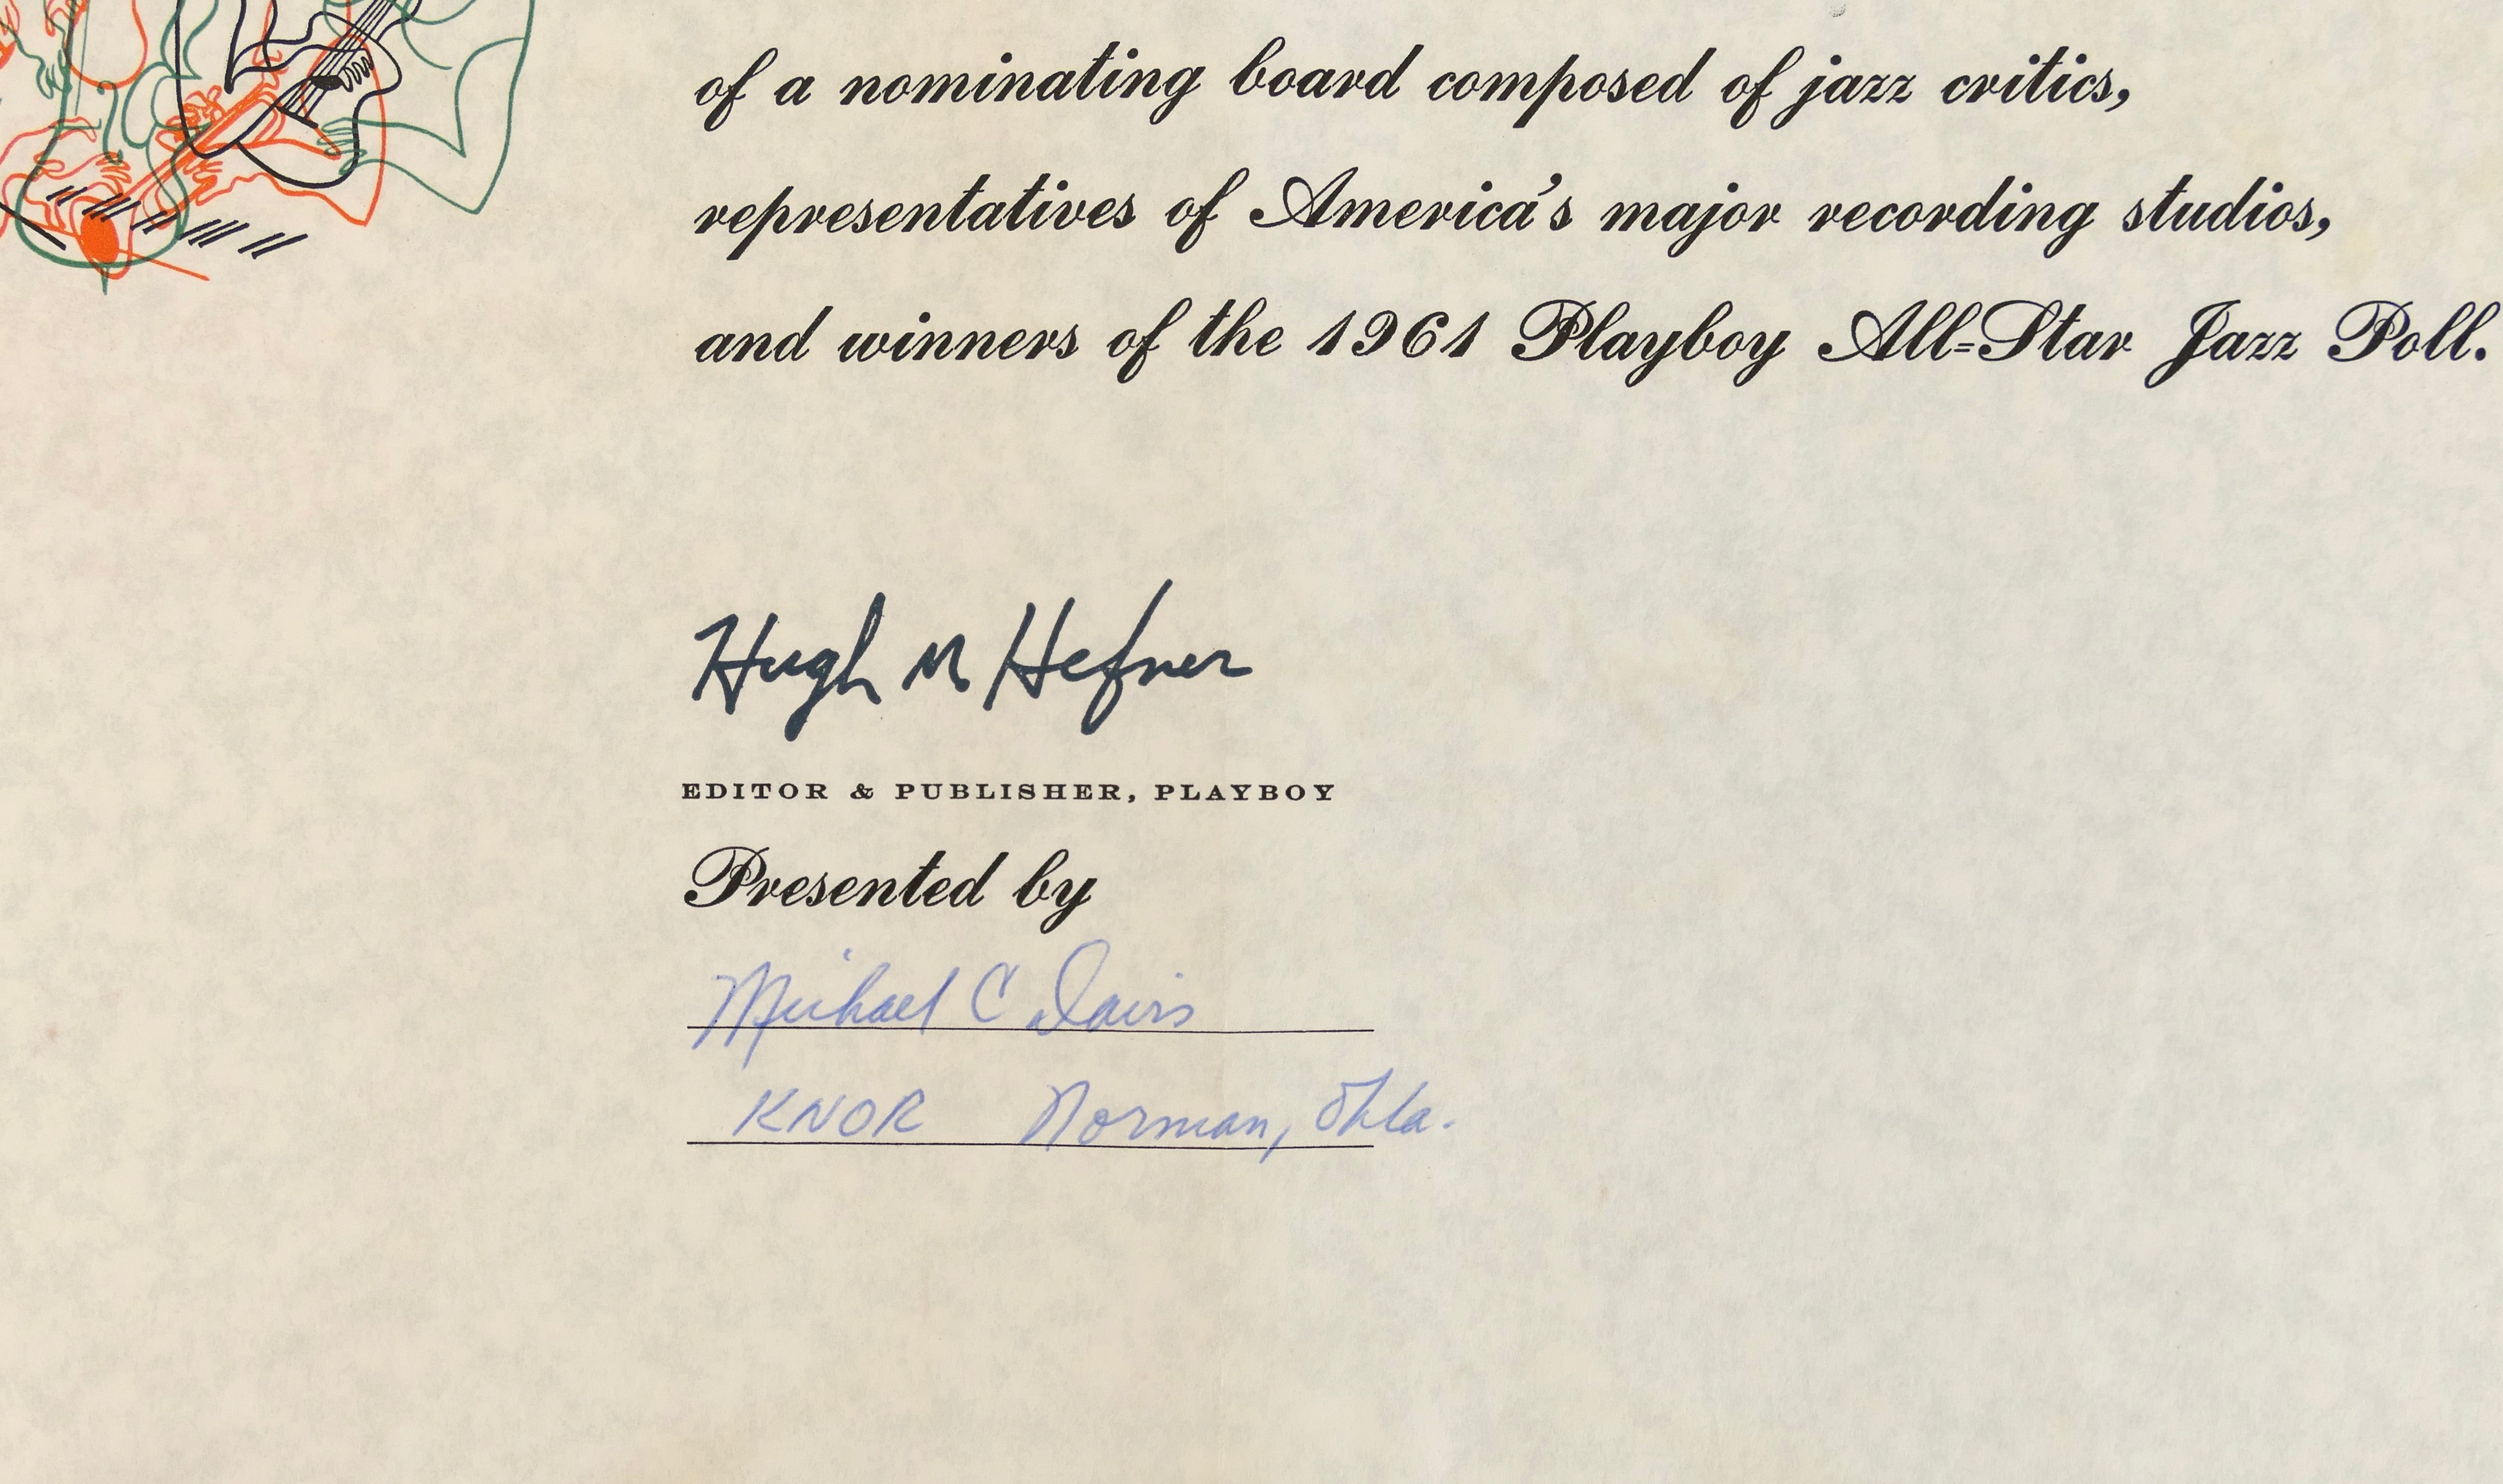 of a nominating board composed of jazz critics,
representatives of America's major recording studios,
and winners of the 1961 Playboy All-Star Jazz Poll.
Hugh M Hefner
EDITOR & PUBLISHER, PLAYBOY
Presented by
Michael C Davis
KNOR Norman, Okla.